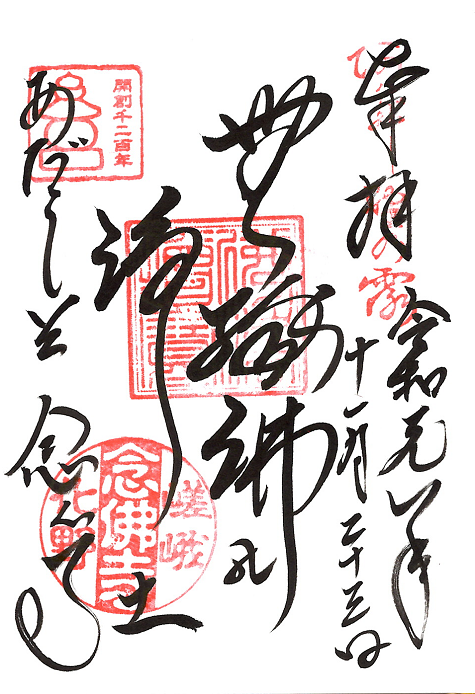 奉拝
令和元年
十一月二十三日
露
無縁佛
浄土
あだし野
念仏寺
開創千二百年
嵯峨
念佛寺
化野